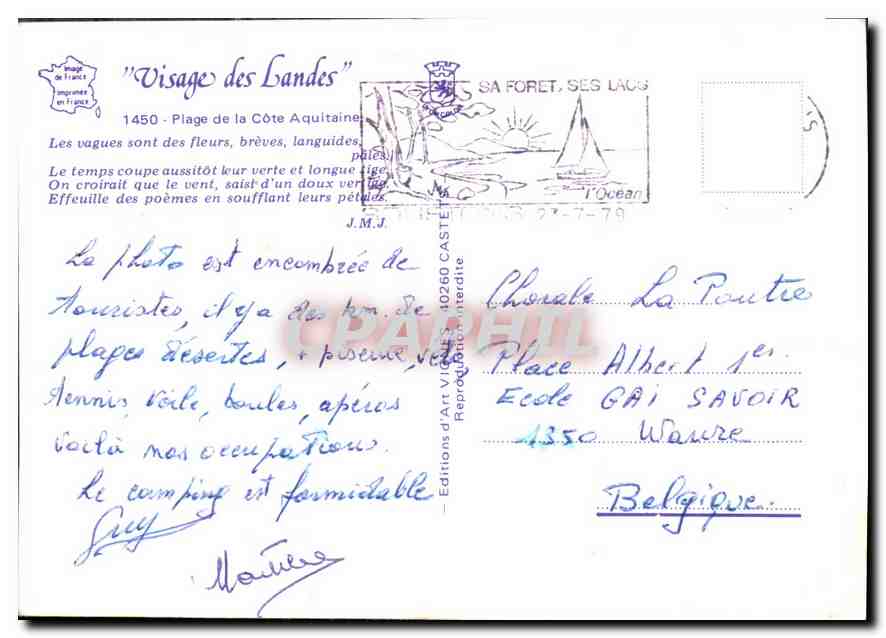 Image
de France
Imprimée
en France
"Visage des Landes"
1450 - Plage de la Côte Aquitaine
Les vagues sont des fleurs, brèves, languides,
pâles.
Le temps coupe aussitôt leur verte et longue tige.
On croirait que le vent, saisi d'un doux vertige
Effeuille des poèmes en soufflant leurs pétales.
J.M.J.
SA FORET, SES LACS
l'Océan
23-7-79
La photo est encombrée de
touristes, il y a des km. de
plages désertes, + piscine, vélo,
tennis, voile, boules, apéros
voilà nos occupations.
Le camping est formidable
Guy
Martine
— Editions d'Art VIGNES, 40260 CASTETS
Reproduction interdite
Chorale La Poutre
Place Albert 1er.
Ecole GAI SAVOIR
1350 Wavre
Belgique.
CPAPHIL